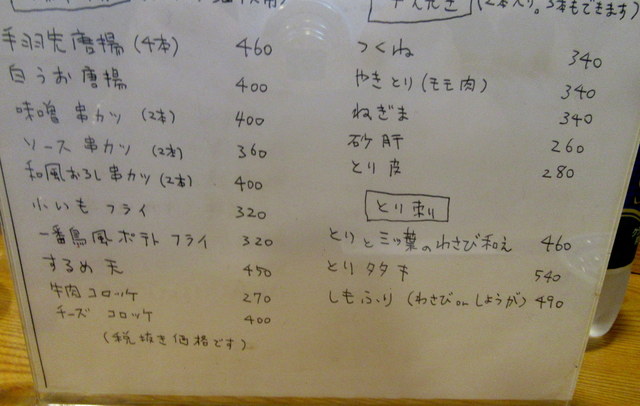 手羽先唐揚(4本) 460
白うお唐揚 400
味噌串カツ(2本) 400
ソース串カツ(2本) 360
和風おろし串カツ(2本) 400
小いもフライ 320
一番鳥風ポテトフライ 320
するめ天 450
牛肉コロッケ 270
チーズコロッケ 400
(税抜き価格です)
(2本入り。3本もできます)
つくね 340
やきとり(モモ肉) 340
ねぎま 340
砂肝 260
とり皮 280
とり刺り
とりと三ッ葉のわさび和え 460
とりタタキ 540
しもふり(わさびorしょうが) 490